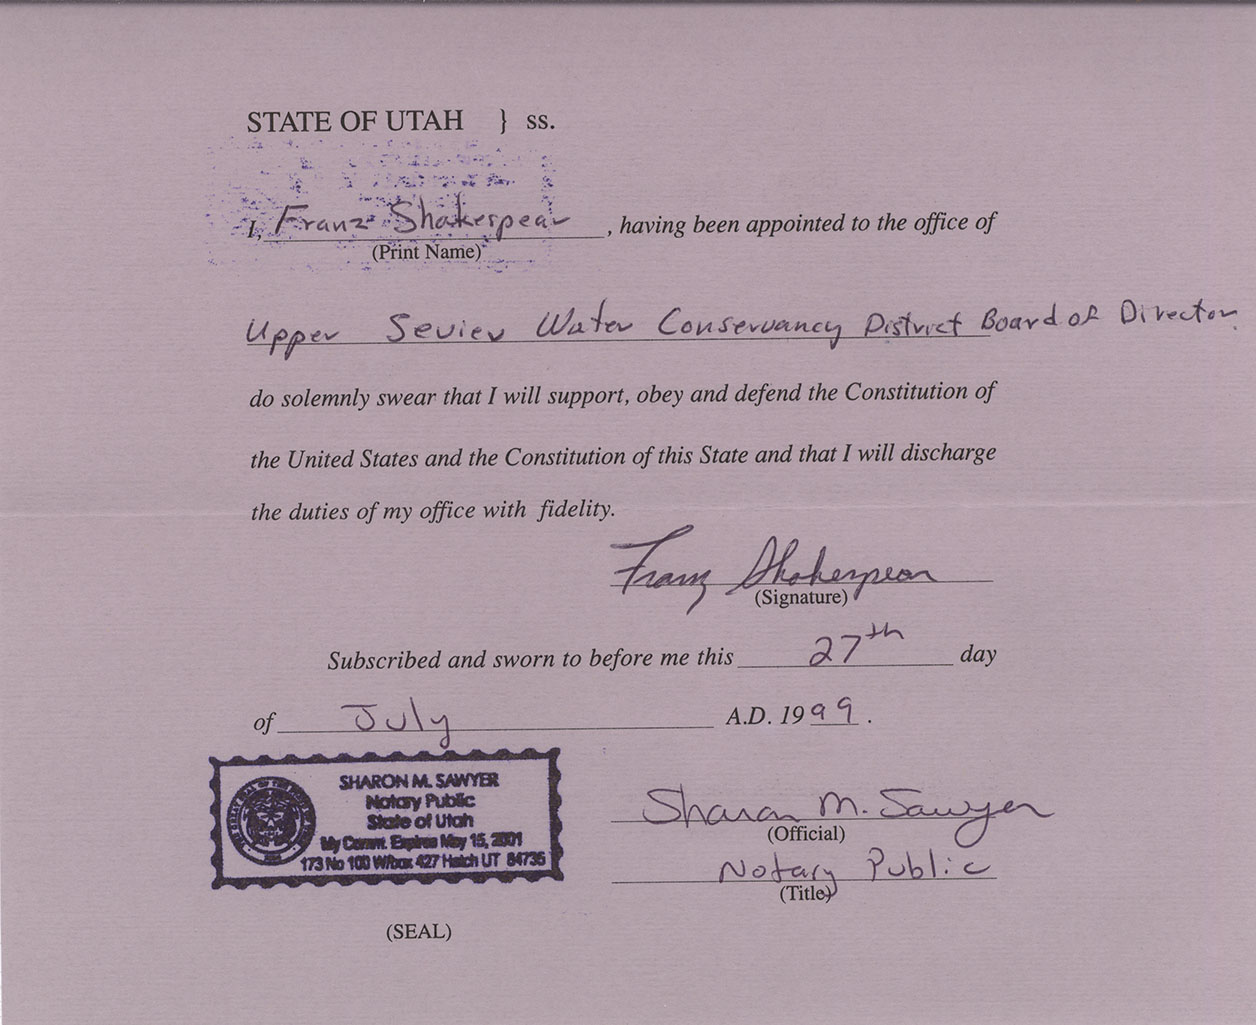 STATE OF UTAH } ss.
I, Franz Shakespear, having been appointed to the office of
(Print Name)
Upper Sevier Water Conservancy District Board of Director
do solemnly swear that I will support, obey and defend the Constitution of
the United States and the Constitution of this State and that I will discharge
the duties of my office with fidelity.
Franz Shakespear
(Signature)
Subscribed and sworn to before me this 27th day
of July A.D. 1999.
SHARON M. SAWYER
Notary Public
State of Utah
My Comm. Expires May 15, 2001
173 No 100 W/box 427 Hatch UT 84735
Sharon M. Sawyer
(Official)
Notary Public
(Title)
(SEAL)